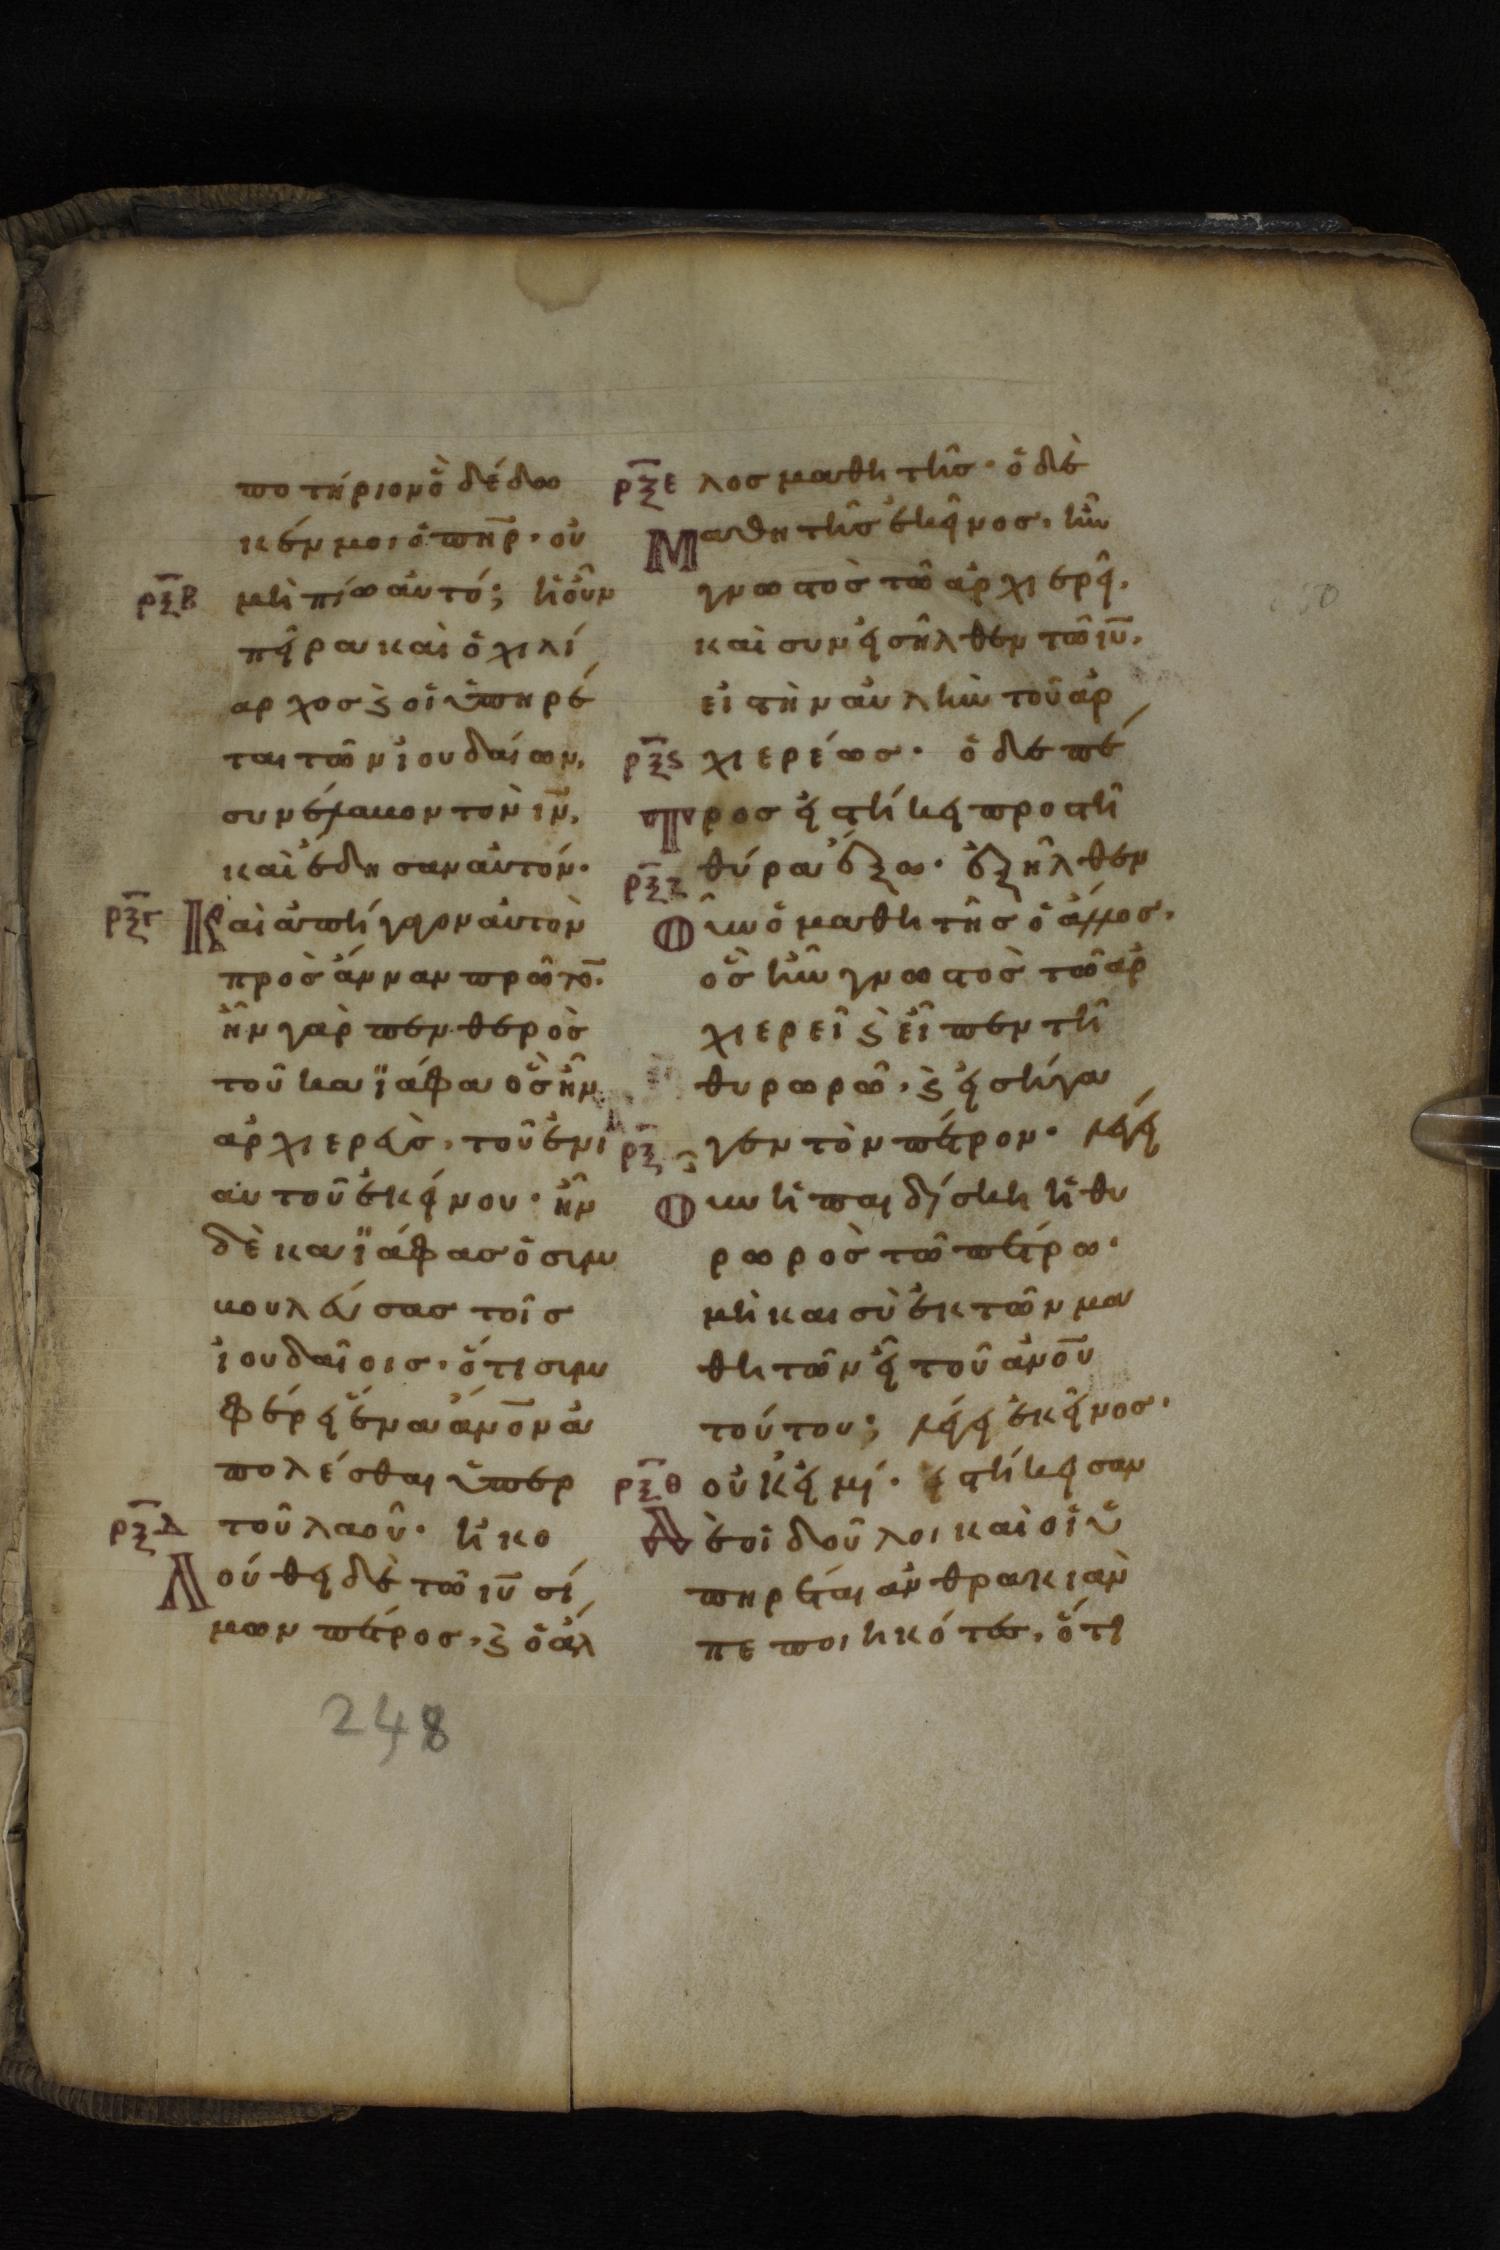 ποτήριον ὃ δέδω
κέν μοι ὁ π̅η̅ρ· οὐ
ρ̅ξ̅β μὴ πίω αὐτό; ἡ οὖν
πεῖρα καὶ ὁ χιλί
αρχος ϗ οἱ ὑπηρέ
ται τῶν ἰουδαίων,
συνέλαβον τὸν ι̅ν̅,
καὶ ἔδησαν αὐτόν·
ρ̅ξ̅γ Καὶ ἀπήγαγον αὐτὸν
πρὸς ἄνναν πρῶτο̅·
ἦν γὰρ πενθερὸς
τοῦ καϊάφα ὃς ἦν
ἀρχιερεὺς, τοῦ ἐνι
αυτοῦ ἐκείνου· ἦν
δὲ καϊάφας ὁ συμ
βουλεύσας τοῖς
ἰουδαίοις, ὅτι συμ
φέρει ἕνα α̅ν̅ο̅ν ἀ
πολέσθαι ὑπὲρ
ρ̅ξ̅δ τοῦ λαοῦ· ἠκο
λούθει δὲ τῶ ι̅υ̅ σί
μων πέτρος, ϗ ὁ ἄλ
ρ̅ξ̅ε λος μαθητὴς· ὁ δὲ
Μαθητὴς ἐκεῖνος, ἦν
γνωστὸς τῶ ἀρχιερεῖ,
καὶ συνεισῆλθεν τῶ ι̅υ̅,
εἰς τὴν αὐλὴν τοῦ ἀρ
ρ̅ξ̅ϛ χιερέως· ὁ δὲ πέ
Τρος εἱστήκει προς τῆ
ρ̅ξ̅ζ θύρα ἔξω· ἐξῆλθεν
Οὖν ὁ μαθητὴς ὁ ἄλλος,
ὃς ἦν γνωστὸς τῶ ἀρ
χιερεῖ ϗ εἶπεν τῆ
θυρωρῶ, ϗ εἰσήγα
ρ̅ξ̅η γεν τὸν πέτρον· λέγει
Οὖν ἡ παιδίσκη ἡ θυ
ρωρὸς τῶ πέτρω·
μὴ και σὺ ἐκ τῶν μα
θητῶν εἶ τοῦ α̅ν̅ο̅υ
τούτου; λέγει ἐκεῖνος·
ρ̅ξ̅θ οὐκ εἰμί· εἱστήκεισαν
Δὲ οἱ δοῦλοι καὶ οἱ ὑ
πηρέται ἀνθρακιὰν
πεποιηκότες, ὅτι
248